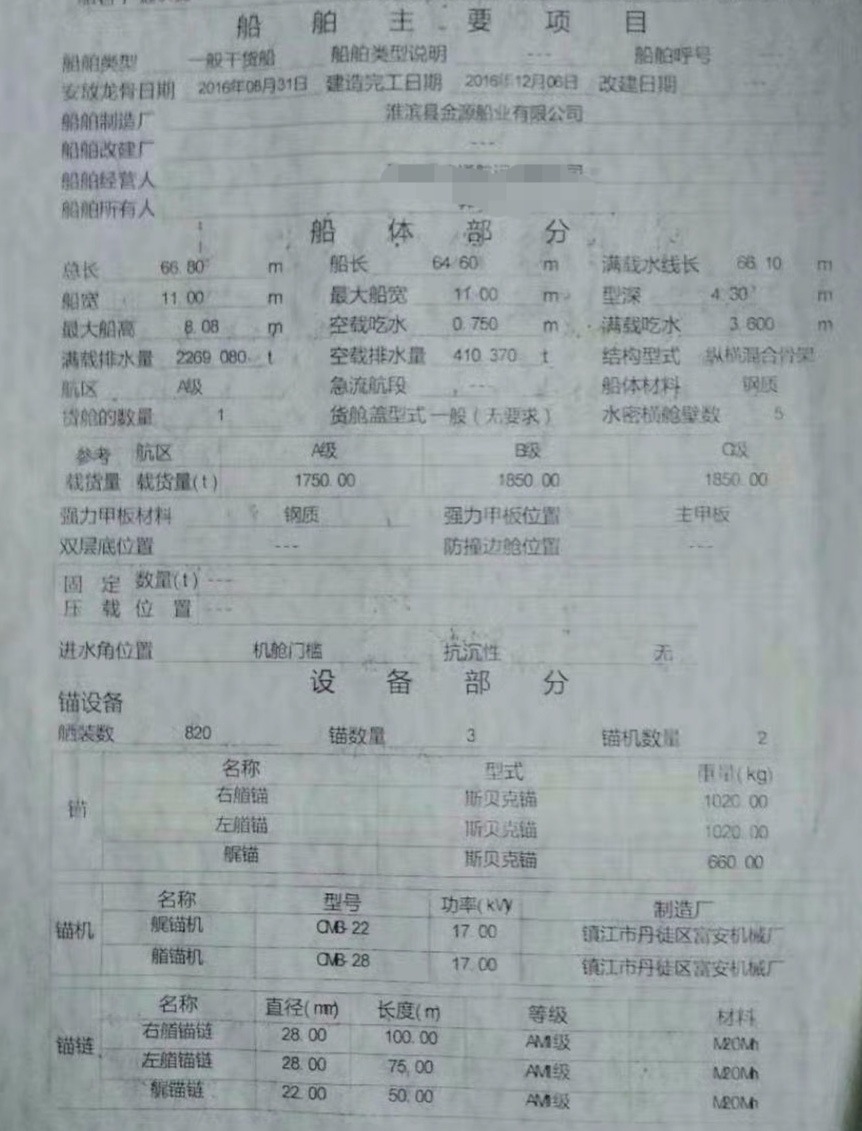 船 舶 主 要 项 目
船舶类型 一般干货船 船舶类型说明 --- 船舶呼号
安放龙骨日期 2016年08月31日 建造完工日期 2016年12月06日 改建日期 ---
船舶制造厂 淮滨县金源船业有限公司
船舶改建厂 ---
船舶经营人
船舶所有人
船 体 部 分
总长 66.80 m 船长 64.60 m 满载水线长 66.10 m
船宽 11.00 m 最大船宽 11.00 m 型深 4.30 m
最大船高 8.08 m 空载吃水 0.750 m 满载吃水 3.600 m
满载排水量 2269.080 t 空载排水量 410.370 t 结构型式 纵横混合骨架
航区 A级 急流航段 --- 船体材料 钢质
货舱的数量 1 货舱盖型式 一般(无要求) 水密横舱壁数 5
参考 航区 A级 B级 C级
载货量 载货量(t) 1750.00 1850.00 1850.00
强力甲板材料 钢质 强力甲板位置 主甲板
双层底位置 --- 防撞边舱位置 ---
固 定 数量(t) ---
压 载 位 置 ---
进水角位置 机舱门槛 抗沉性 无
设 备 部 分
锚设备
舾装数 820 锚数量 3 锚机数量 2
名称 型式 重量(kg)
锚 右艏锚 斯贝克锚 1020.00
左艏锚 斯贝克锚 1020.00
艉锚 斯贝克锚 660.00
名称 型号 功率(kW) 制造厂
锚机 艉锚机 CMB-22 17.00 镇江市丹徒区富安机械厂
艏锚机 CMB-28 17.00 镇江市丹徒区富安机械厂
名称 直径(mm) 长度(m) 等级 材料
锚链 右艏锚链 28.00 100.00 AM1级 M20Mn
左艏锚链 28.00 75.00 AM1级 M20Mn
艉锚链 22.00 50.00 AM1级 M20Mn